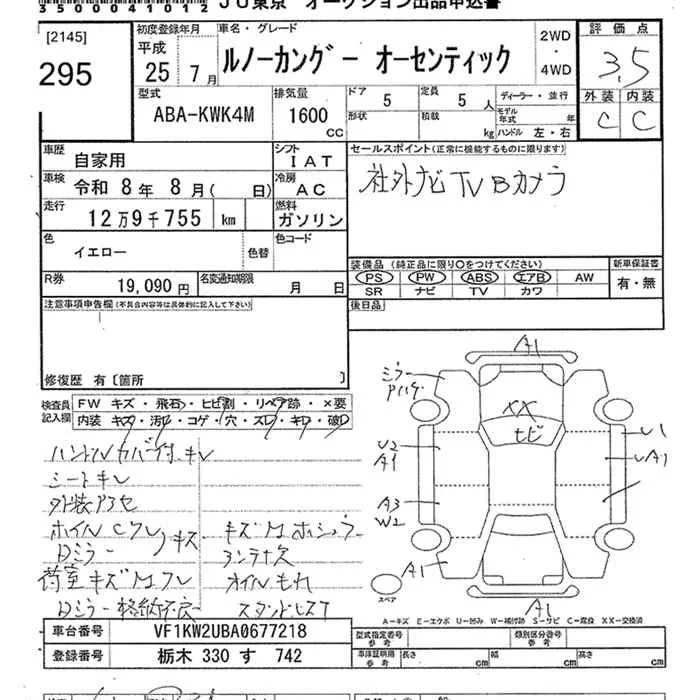 3500041012 JU東京 オークション出品申込書
[2145]
295
初度登録年月
平成
25年 7月
車名・グレード
ルノーカングー オーセンティック
2WD
・
4WD
評価点
3,5
外装 内装
C C
型式
ABA-KWK4M
排気量
1600
CC
ドア
5
定員
5人
形状
積載
kg
ディーラー・並行
モデル年式 年
ハンドル 左・右
車歴
自家用
シフト
IAT
車検
令和 8年 8月( 日)
冷房
AC
走行
12万9千755 km
燃料
ガソリン
色
イエロー
色替
色コード
R券
19,090円
名変通知期限
月 日
セールスポイント(正常に機能するものに限ります)
社外ナビ TV Bカメラ
装備品 (純正品に限り○をつけてください)
PS PW ABS エアB AW
SR ナビ TV カワ
新車保証書
有・無
後日品
注意事項申告欄(不具合内容等は具体的に記入して下さい)
修復歴 有〔箇所 〕
検査員記入欄
FW キズ・飛石・ヒビ割・リペア跡・×要
内装 キズ・汚レ・コゲ・穴・スレ・キレ・破レ
ハンドルカバー付 キレ
シートキレ
ホイルC
Dミラー
キズ
荷室キズ
オイルモレ
Dミラー格納不良
A1
ミラー
XX
ヒビ
U2
A1
A3
W2
A1
U1
UA1
A1
スペア
A－キズ E－エクボ U－凹み W－補修跡 S－サビ C－腐蝕 XX－交換済
車台番号 VF1KW2UBA0677218
登録番号 栃木 330 す 742
型式指定番号
参考
類別区分番号
参考
車庫証明用
参考
長さ cm
幅 cm
高さ cm